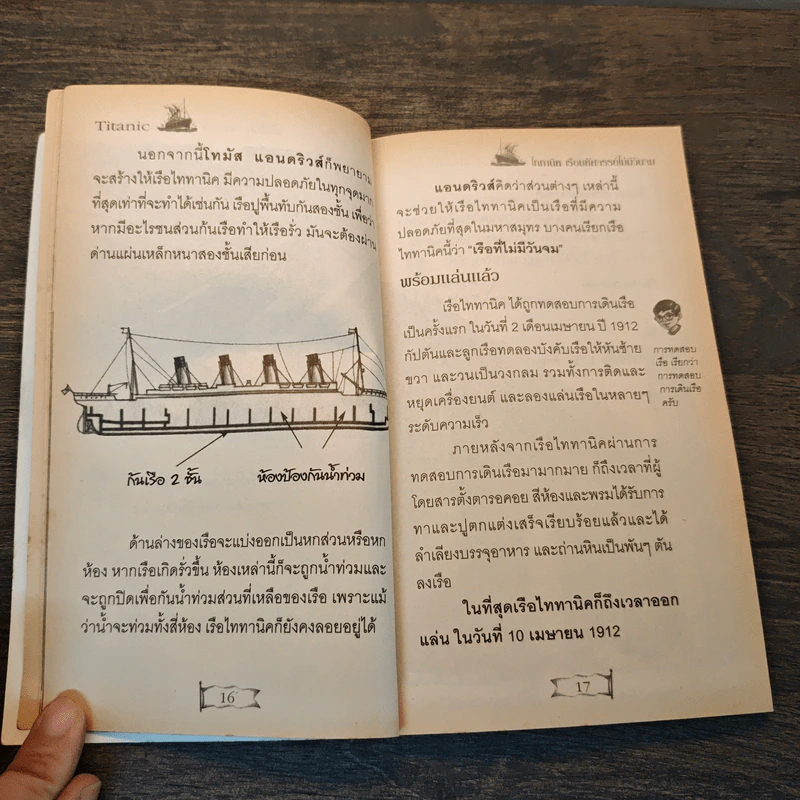 Titanic
นอกจากนี้โทมัส แอนดริวส์ก็พยายาม
จะสร้างให้เรือไททานิค มีความปลอดภัยในทุกจุดมาก
ที่สุดเท่าที่จะทำได้เช่นกัน เรือปูพื้นทับกันสองชั้น เพื่อว่า
หากมีอะไรชนส่วนก้นเรือทำให้เรือรั่ว มันจะต้องผ่าน
ด่านแผ่นเหล็กหนาสองชั้นเสียก่อน
ก้นเรือ 2 ชั้น
ห้องป้องกันน้ำท่วม
ด้านล่างของเรือจะแบ่งออกเป็นหกส่วนหรือหก
ห้อง หากเรือเกิดรั่วขึ้น ห้องเหล่านี้ก็จะถูกน้ำท่วมและ
จะถูกปิดเพื่อกันน้ำท่วมส่วนที่เหลือของเรือ เพราะแม้
ว่าน้ำจะท่วมทั้งสี่ห้อง เรือไททานิคก็ยังคงลอยอยู่ได้
16
ไททานิค เรือมหัศจรรย์ไม่มีวันจม
แอนดริวส์คิดว่าส่วนต่างๆ เหล่านี้
จะช่วยให้เรือไททานิคเป็นเรือที่มีความ
ปลอดภัยที่สุดในมหาสมุทร บางคนเรียกเรือ
ไททานิคนี้ว่า "เรือที่ไม่มีวันจม"
พร้อมแล่นแล้ว
เรือไททานิค ได้ถูกทดสอบการเดินเรือ
เป็นครั้งแรก ในวันที่ 2 เดือนเมษายน ปี 1912
กัปตันและลูกเรือทดลองบังคับเรือให้หันซ้าย
ขวา และวนเป็นวงกลม รวมทั้งการติดและ
หยุดเครื่องยนต์ และลองแล่นเรือในหลายๆ
ระดับความเร็ว
การทดสอบ
เรือ เรียกว่า
การทดสอบ
การเดินเรือ
ครับ
ภายหลังจากเรือไททานิคผ่านการ
ทดสอบการเดินเรือมามากมาย ก็ถึงเวลาที่ผู้
โดยสารตั้งตารอคอย สีห้องและพรมได้รับการ
ทาและปูตกแต่งเสร็จเรียบร้อยแล้วและได้
ลำเลียงบรรจุอาหาร และถ่านหินเป็นพันๆ ตัน
ลงเรือ
ในที่สุดเรือไททานิคก็ถึงเวลาออก
แล่น ในวันที่ 10 เมษายน 1912
17